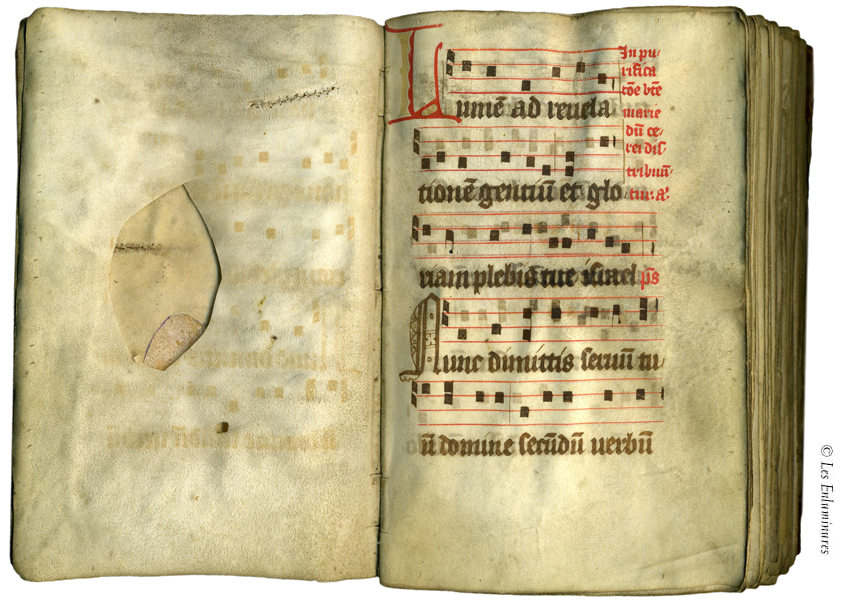 Lumē ad reuela
In pu/
rifica
cōe bte
marie
dū ce/
rei dis
tribuūt/
tionē gentiū et glo
tur. A.
riam plebis tue israel p̄s
Nunc dimittis seruū tu/
ū domine secūdū uerbū
© Les Enluminures